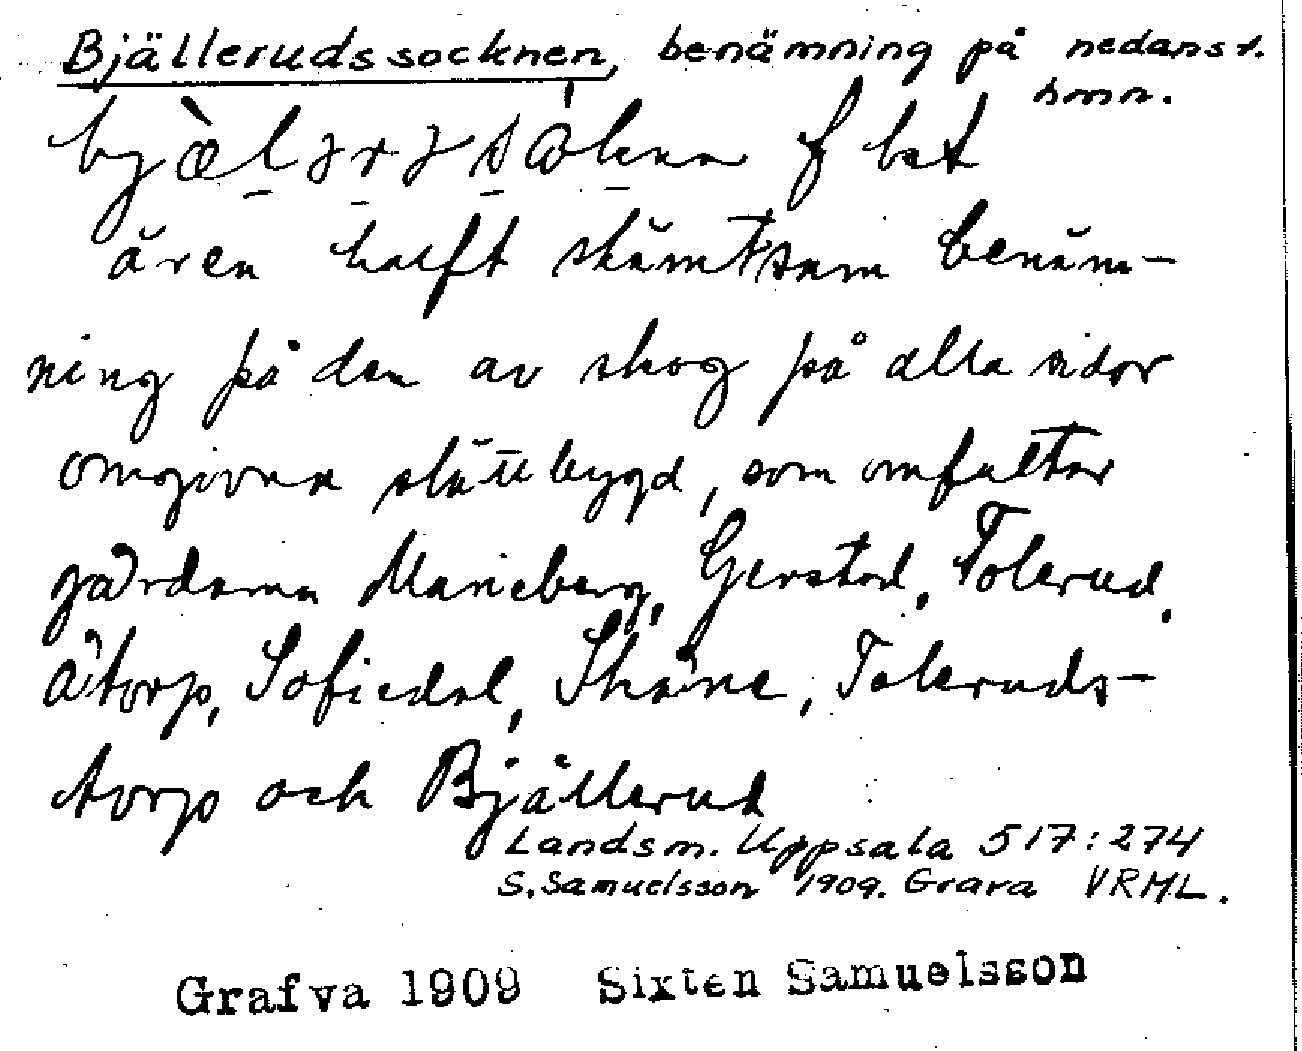 Bjällerudssocknen, benämning på nedanst.
f bst
är en halft skämtsam benäm-
ning på den av skog på alla sidor
omgivna slättbygd, som omfattar
gårdarna Marieberg, Gerstad, Tolerud,
Åtorp, Sofiedal, Skåne, Toleruds-
torp och Bjällerud
Landsm. Uppsala 517:274
S. Samuelsson 1909. Grava VRML.
Grafva 1909 Sixten Samuelsson